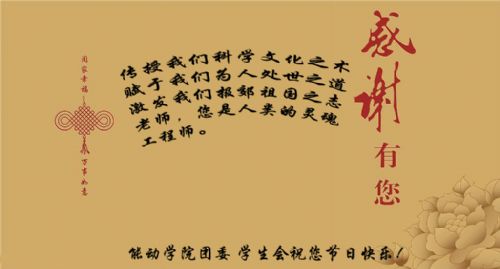 感谢有您
传授我们科学文化之术
赋于我们为人处世之道
激发我们报郊祖国之志
老师，您是人类的灵魂
工程师。
阖家幸福
万事如意
能动学院团委 学生会祝您节日快乐！